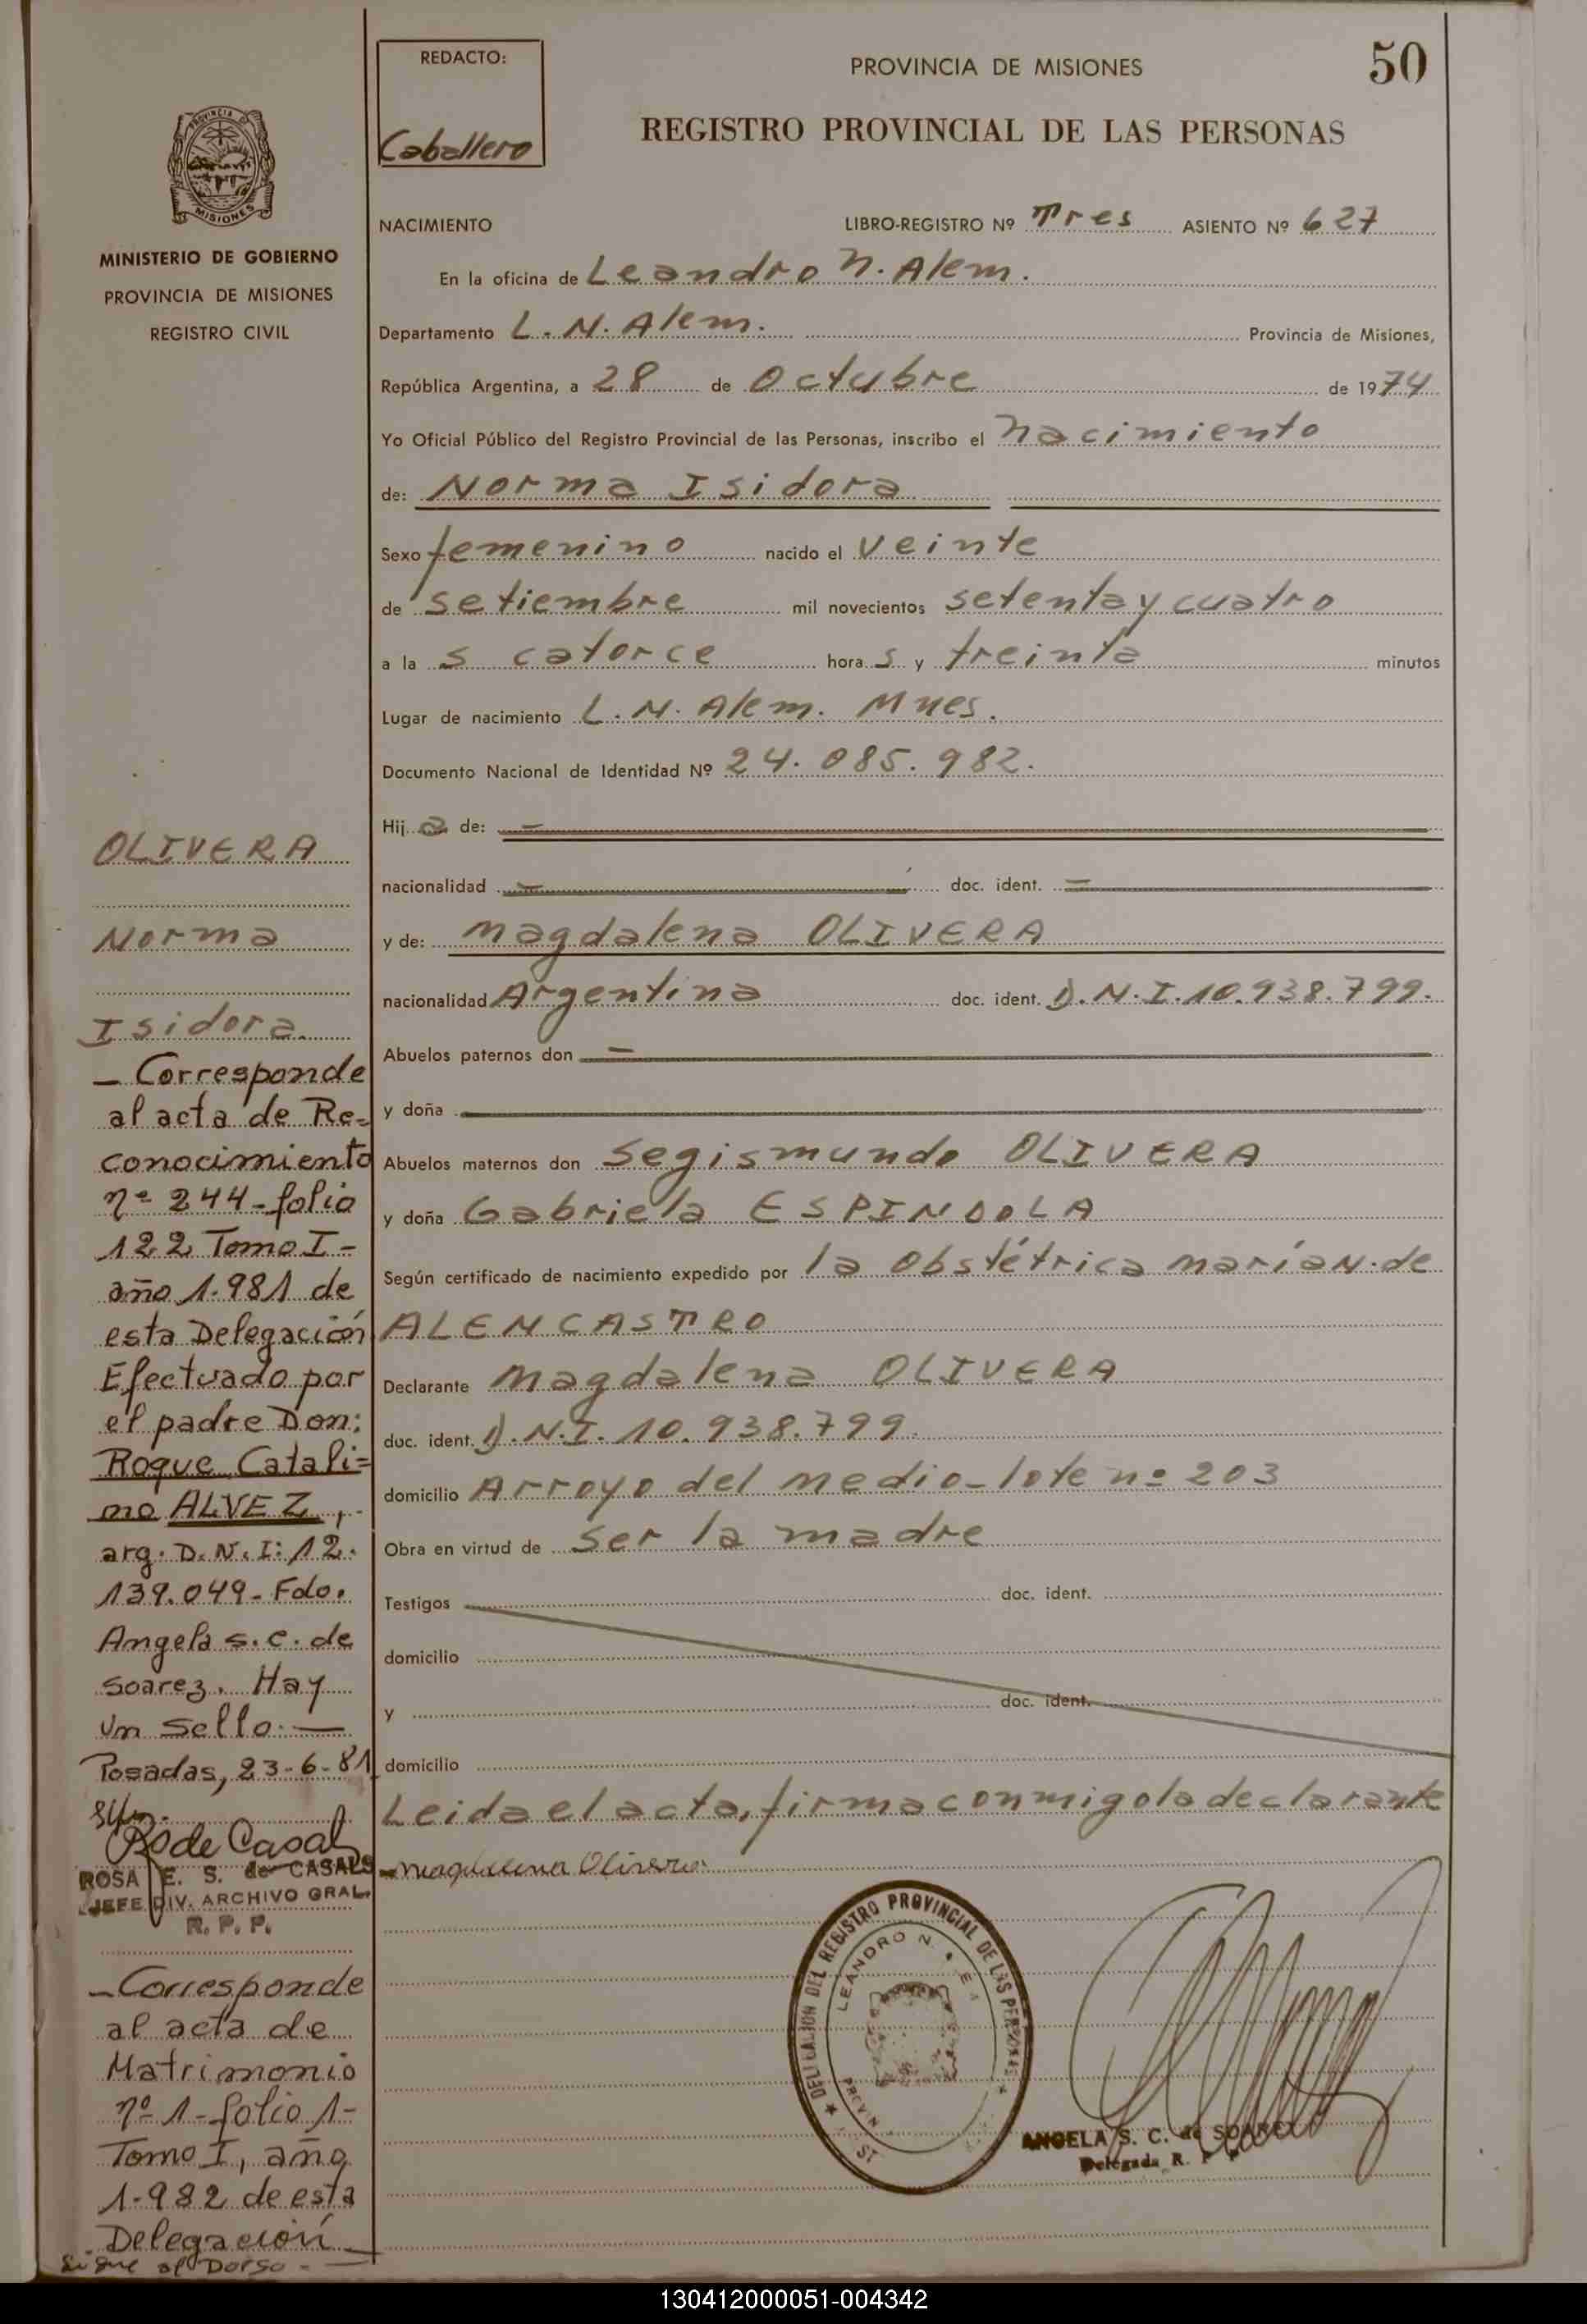 REDACTO:
Caballero
PROVINCIA DE MISIONES
50
REGISTRO PROVINCIAL DE LAS PERSONAS
PROVINCIA DE
MISIONES
MINISTERIO DE GOBIERNO
PROVINCIA DE MISIONES
REGISTRO CIVIL
NACIMIENTO LIBRO-REGISTRO Nº Tres ASIENTO Nº 627
En la oficina de Leandro N. Alem.
Departamento L. N. Alem. Provincia de Misiones,
República Argentina, a 28 de Octubre de 1974
Yo Oficial Público del Registro Provincial de las Personas, inscribo el nacimiento
de: Norma Isidora
Sexo femenino nacido el veinte
de setiembre mil novecientos setenta y cuatro
a la s catorce hora s y treinta minutos
Lugar de nacimiento L. N. Alem. Mnes.
Documento Nacional de Identidad Nº 24.085.982.
Hij a de: —
nacionalidad — doc. ident. —
y de: Magdalena OLIVERA
nacionalidad Argentina doc. ident. D.N.I. 10.938.799.
Abuelos paternos don —
y doña
Abuelos maternos don Segismundo OLIVERA
y doña Gabriela ESPINDOLA
Según certificado de nacimiento expedido por la Obstétrica María N. de
ALENCASTRO
Declarante Magdalena OLIVERA
doc. ident. D.N.I. 10.938.799.
domicilio Arroyo del Medio - lote nº 203
Obra en virtud de ser la madre
Testigos doc. ident.
domicilio
y doc. ident.
domicilio
Leida el acta, firma conmigo la declarante
Magdalena Olivera
OLIVERA
Norma
Isidora.
— Corresponde
al acta de Re=
conocimiento
nº 244 - folio
122 Tomo I -
año 1.981 de
esta Delegación
Efectuado por
el padre Don:
Roque Catali=
no ALVEZ,
arg. D.N.I: 12.
139.049 - Fdo.
Angela S. C. de
Soarez. Hay
un sello. —
Posadas, 23-6-81
R de Casals
ROSA E. S. de CASALS
JEFE DIV. ARCHIVO GRAL.
R. P. P.
— Corresponde
al acta de
Matrimonio
nº 1 - folio 1 -
Tomo I, año
1.982 de esta
Delegación
Sigue al Dorso -
DELEGACION DEL REGISTRO PROVINCIAL DE LAS PERSONAS
LEANDRO N.
ANGELA S. C. de SOAREZ
Delegada R. P. P.
130412000051-004342